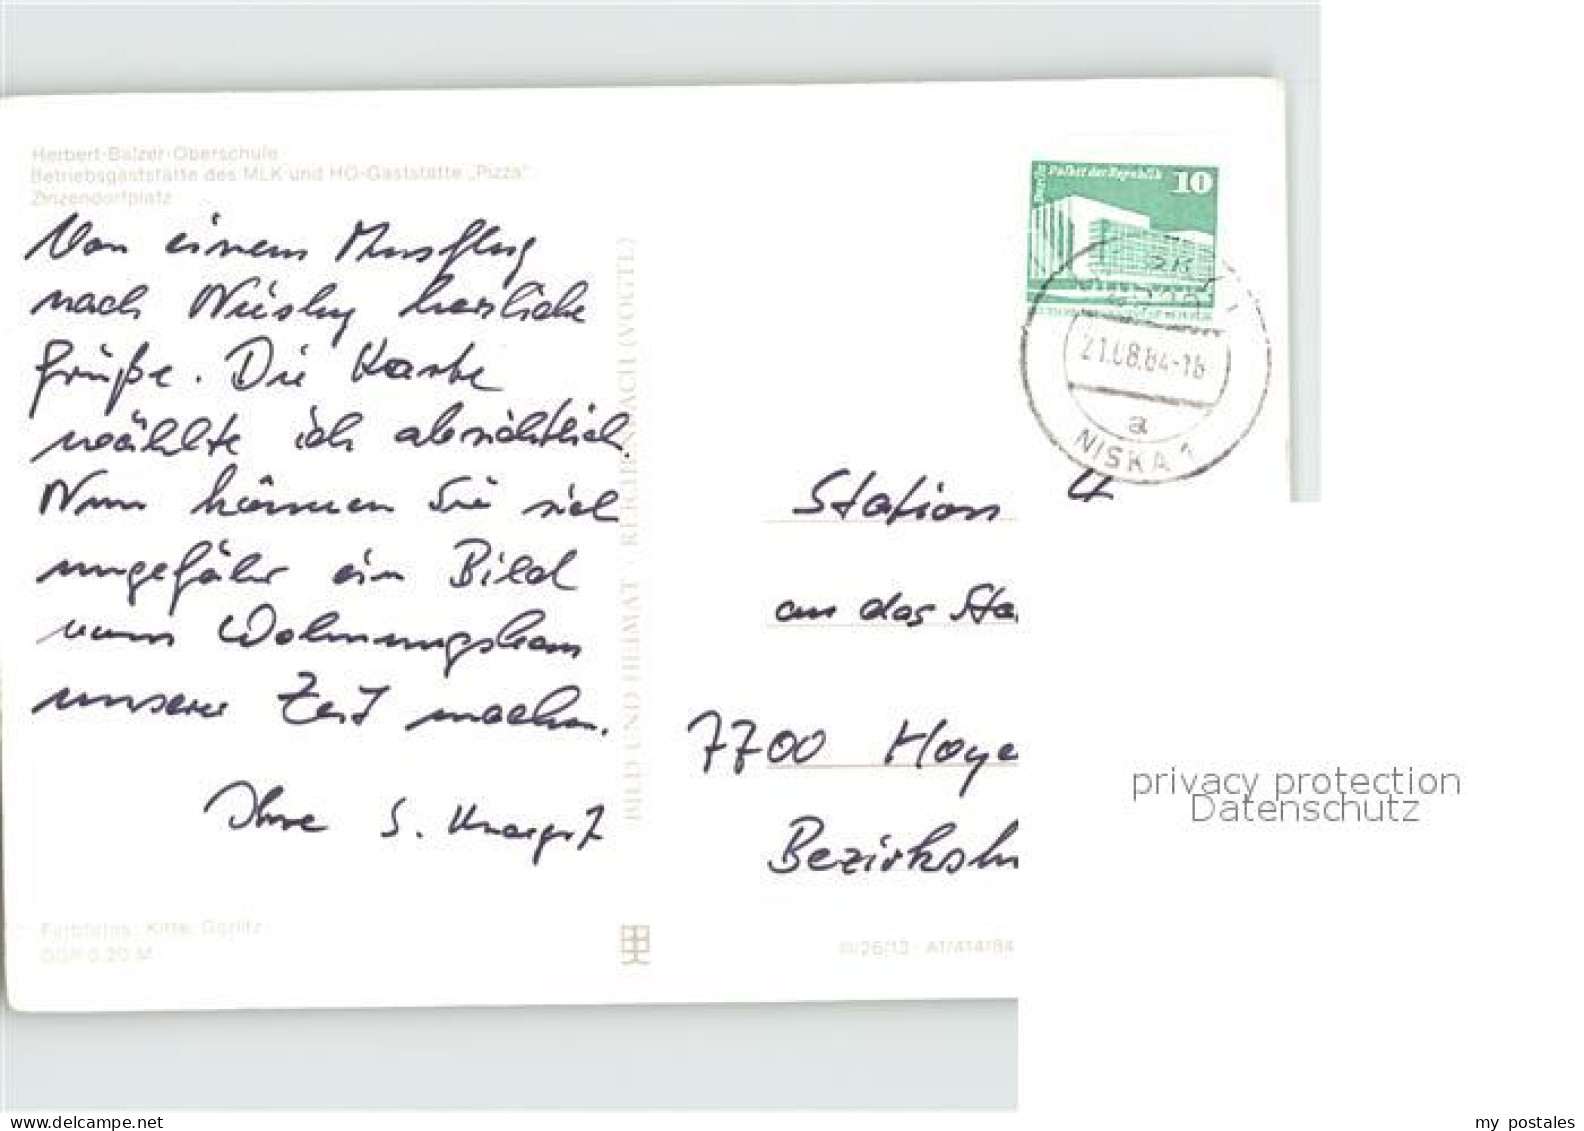 Herbert-Balzer-Oberschule
Betriebsgaststätte des MLK und HO-Gaststätte „Pizza"
Zinzendorfplatz
Von einem Ausflug
nach Niesky herzliche
Grüße. Die Karte
wählte ich absichtlich.
Nun können Sie sich
ungefähr ein Bild
vom Wohnungsbau
unserer Zeit machen.
Ihre S.
BILD UND HEIMAT · REICHENBACH (VOGTL)
Farbfotos: Kitte, Görlitz
DDR 0,20 M
Berlin Palast der Republik 10
21.08.84-18
a
NISKA 1
Station 4
an das Sta
7700 Hoye
Bezirks
A1/414/84
privacy protection
Datenschutz
my postales